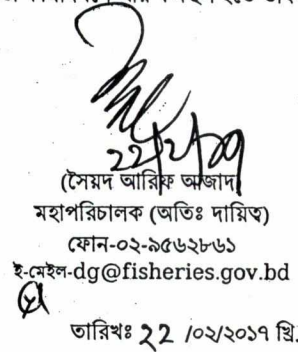 ২২/২/১৭
(সৈয়দ আরিফ আজাদ)
মহাপরিচালক (অতিঃ দায়িত্ব)
ফোন-০২-৯৫৬২৮৬১
ই-মেইল-dg@fisheries.gov.bd
তারিখঃ ২২ /০২/২০১৭ খ্রি.